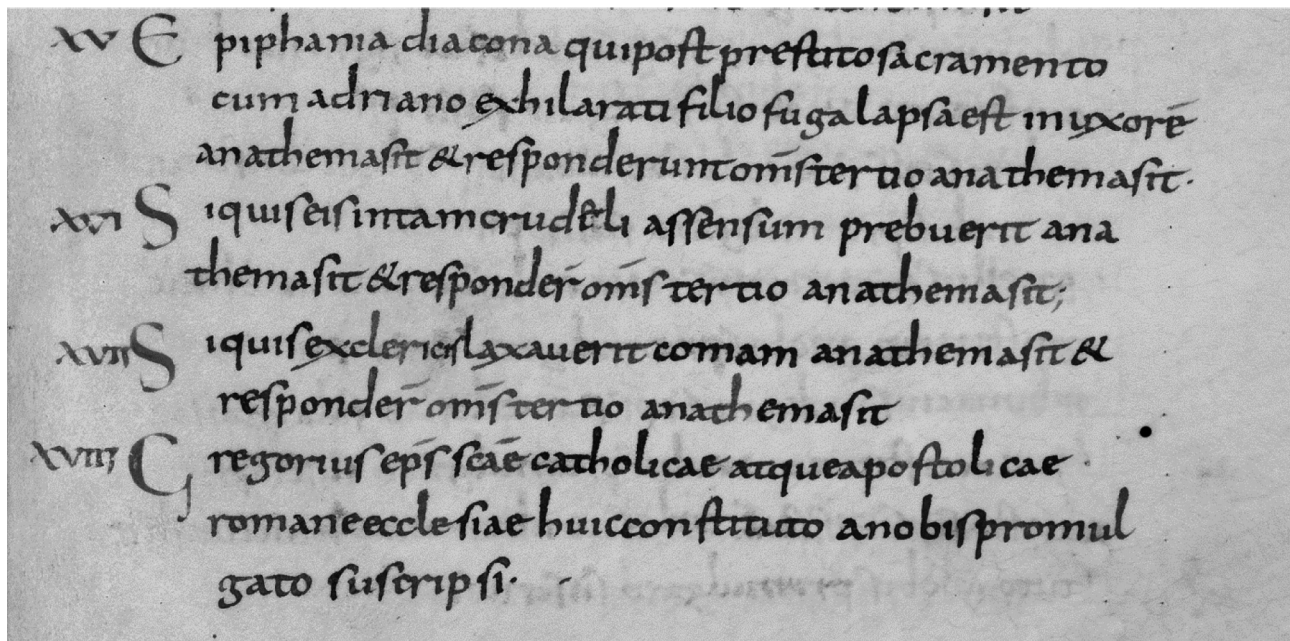 XV Epiphania diacona qui post prestito sacramento
cum adriano exhilarati filio fuga lapsa est in uxorē
anathema sit & responderunt om̄s tertio anathema sit·
XVI Siquis eis in tam crudeli assensum prebuerit ana
thema sit & responder̄ om̄s tertio anathema sit;
XVII Siquis ex clericis laxauerit comam anathema sit &
responder̄ om̄s tertio anathema sit
XVIII Gregorius ep̄s scāe catholicae atque apostolicae·
romane ecclesiae huic constituto a nobis promul
gato suscripsi·